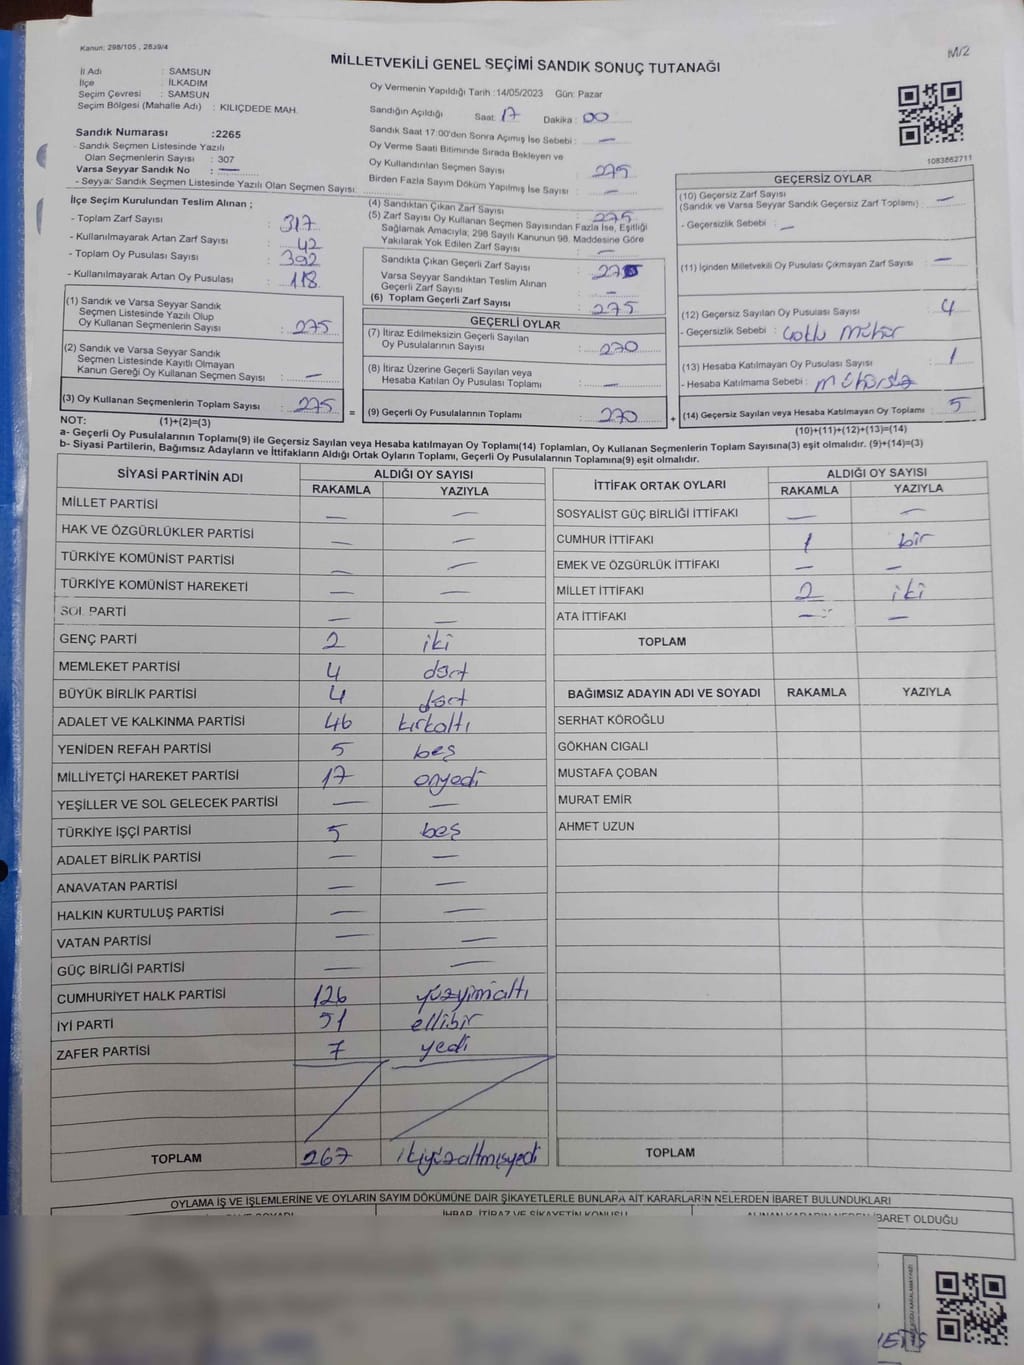 Kanun: 298/105, 2839/4
M/2
MİLLETVEKİLİ GENEL SEÇİMİ SANDIK SONUÇ TUTANAĞI
İl Adı : SAMSUN
İlçe : İLKADIM
Seçim Çevresi : SAMSUN
Seçim Bölgesi (Mahalle Adı) : KILIÇDEDE MAH.
Sandık Numarası :2265
Sandık Seçmen Listesinde Yazılı
Olan Seçmenlerin Sayısı : 307
Varsa Seyyar Sandık No : —
- Seyyar Sandık Seçmen Listesinde Yazılı Olan Seçmen Sayısı:
Oy Vermenin Yapıldığı Tarih :14/05/2023 Gün: Pazar
Sandığın Açıldığı Saat: 17 Dakika : 00
Sandık Saat 17:00'den Sonra Açımış İse Sebebi : —
Oy Verme Saati Bitiminde Sırada Bekleyen ve
Oy Kullandırılan Seçmen Sayısı : 275
Birden Fazla Sayım Döküm Yapılmış İse Sayısı : —
1083862711
İlçe Seçim Kurulundan Teslim Alınan ;
- Toplam Zarf Sayısı : 317
- Kullanılmayarak Artan Zarf Sayısı : 42
- Toplam Oy Pusulası Sayısı : 392
- Kullanılmayarak Artan Oy Pusulası : 118
(1) Sandık ve Varsa Seyyar Sandık
Seçmen Listesinde Yazılı Olup
Oy Kullanan Seçmenlerin Sayısı : 275
(2) Sandık ve Varsa Seyyar Sandık
Seçmen Listesinde Kayıtlı Olmayan
Kanun Gereği Oy Kullanan Seçmen Sayısı : —
(3) Oy Kullanan Seçmenlerin Toplam Sayısı : 275
(1)+(2)=(3)
(4) Sandıktan Çıkan Zarf Sayısı : 275
(5) Zarf Sayısı Oy Kullanan Seçmen Sayısından Fazla İse, Eşitliği
Sağlamak Amacıyla; 298 Sayılı Kanunun 98. Maddesine Göre
Yakılarak Yok Edilen Zarf Sayısı : —
Sandıkta Çıkan Geçerli Zarf Sayısı : 275
Varsa Seyyar Sandıktan Teslim Alınan
Geçerli Zarf Sayısı : —
(6) Toplam Geçerli Zarf Sayısı : 275
GEÇERLİ OYLAR
(7) İtiraz Edilmeksizin Geçerli Sayılan
Oy Pusulalarının Sayısı : 270
(8) İtiraz Üzerine Geçerli Sayılan veya
Hesaba Katılan Oy Pusulası Toplamı : —
= (9) Geçerli Oy Pusulalarının Toplamı : 270 +
GEÇERSİZ OYLAR
(10) Geçersiz Zarf Sayısı
(Sandık ve Varsa Seyyar Sandık Geçersiz Zarf Toplamı) : —
- Geçersizlik Sebebi : —
(11) İçinden Milletvekili Oy Pusulası Çıkmayan Zarf Sayısı : —
(12) Geçersiz Sayılan Oy Pusulası Sayısı : 4
- Geçersizlik Sebebi : çoklu mühür
(13) Hesaba Katılmayan Oy Pusulası Sayısı : 1
- Hesaba Katılmama Sebebi : mühürsüz
(14) Geçersiz Sayılan veya Hesaba Katılmayan Oy Toplamı : 5
(10)+(11)+(12)+(13)=(14)
NOT:
a- Geçerli Oy Pusulalarının Toplamı(9) ile Geçersiz Sayılan veya Hesaba katılmayan Oy Toplamı(14) Toplamları, Oy Kullanan Seçmenlerin Toplam Sayısına(3) eşit olmalıdır. (9)+(14)=(3)
b- Siyasi Partilerin, Bağımsız Adayların ve İttifakların Aldığı Ortak Oyların Toplamı, Geçerli Oy Pusulalarının Toplamına(9) eşit olmalıdır.
SİYASİ PARTİNİN ADI ALDIĞI OY SAYISI
RAKAMLA YAZIYLA
MİLLET PARTİSİ — —
HAK VE ÖZGÜRLÜKLER PARTİSİ — —
TÜRKİYE KOMÜNİST PARTİSİ — —
TÜRKİYE KOMÜNİST HAREKETİ — —
SOL PARTİ — —
GENÇ PARTİ 2 iki
MEMLEKET PARTİSİ 4 dört
BÜYÜK BİRLİK PARTİSİ 4 dört
ADALET VE KALKINMA PARTİSİ 46 kırkaltı
YENİDEN REFAH PARTİSİ 5 beş
MİLLİYETÇİ HAREKET PARTİSİ 17 onyedi
YEŞİLLER VE SOL GELECEK PARTİSİ — —
TÜRKİYE İŞÇİ PARTİSİ 5 beş
ADALET BİRLİK PARTİSİ — —
ANAVATAN PARTİSİ — —
HALKIN KURTULUŞ PARTİSİ — —
VATAN PARTİSİ — —
GÜÇ BİRLİĞİ PARTİSİ — —
CUMHURİYET HALK PARTİSİ 126 yüzyirmialtı
İYİ PARTİ 51 ellibir
ZAFER PARTİSİ 7 yedi
TOPLAM 267 ikiyüzaltmışyedi
İTTİFAK ORTAK OYLARI ALDIĞI OY SAYISI
RAKAMLA YAZIYLA
SOSYALİST GÜÇ BİRLİĞİ İTTİFAKI — —
CUMHUR İTTİFAKI 1 bir
EMEK VE ÖZGÜRLÜK İTTİFAKI — —
MİLLET İTTİFAKI 2 iki
ATA İTTİFAKI — —
TOPLAM
BAĞIMSIZ ADAYIN ADI VE SOYADI RAKAMLA YAZIYLA
SERHAT KÖROĞLU
GÖKHAN CIGALI
MUSTAFA ÇOBAN
MURAT EMİR
AHMET UZUN
TOPLAM
OYLAMA İŞ VE İŞLEMLERİNE VE OYLARIN SAYIM DÖKÜMÜNE DAİR ŞİKAYETLERLE BUNLARA AİT KARARLARIN NELERDEN İBARET BULUNDUKLARI
İHBAR, İTİRAZ VE ŞİKAYETİN KONUSU
ALINAN KARARIN NEDEN İBARET OLDUĞU